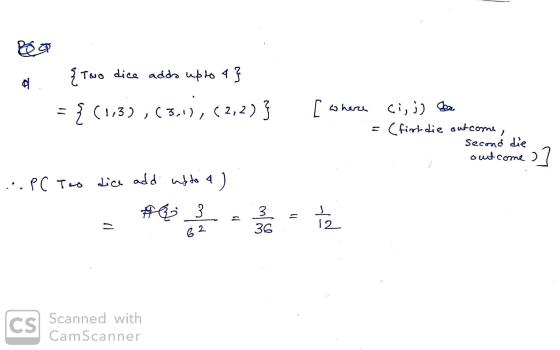 {Two dice adds upto 4}
= { (1,3) , (3,1) , (2,2) } [ where (i,j)
= (first die outcome,
second die
outcome)]
∴ P( Two dice add upto 4 )
= 3/6² = 3/36 = 1/12
CS Scanned with
CamScanner